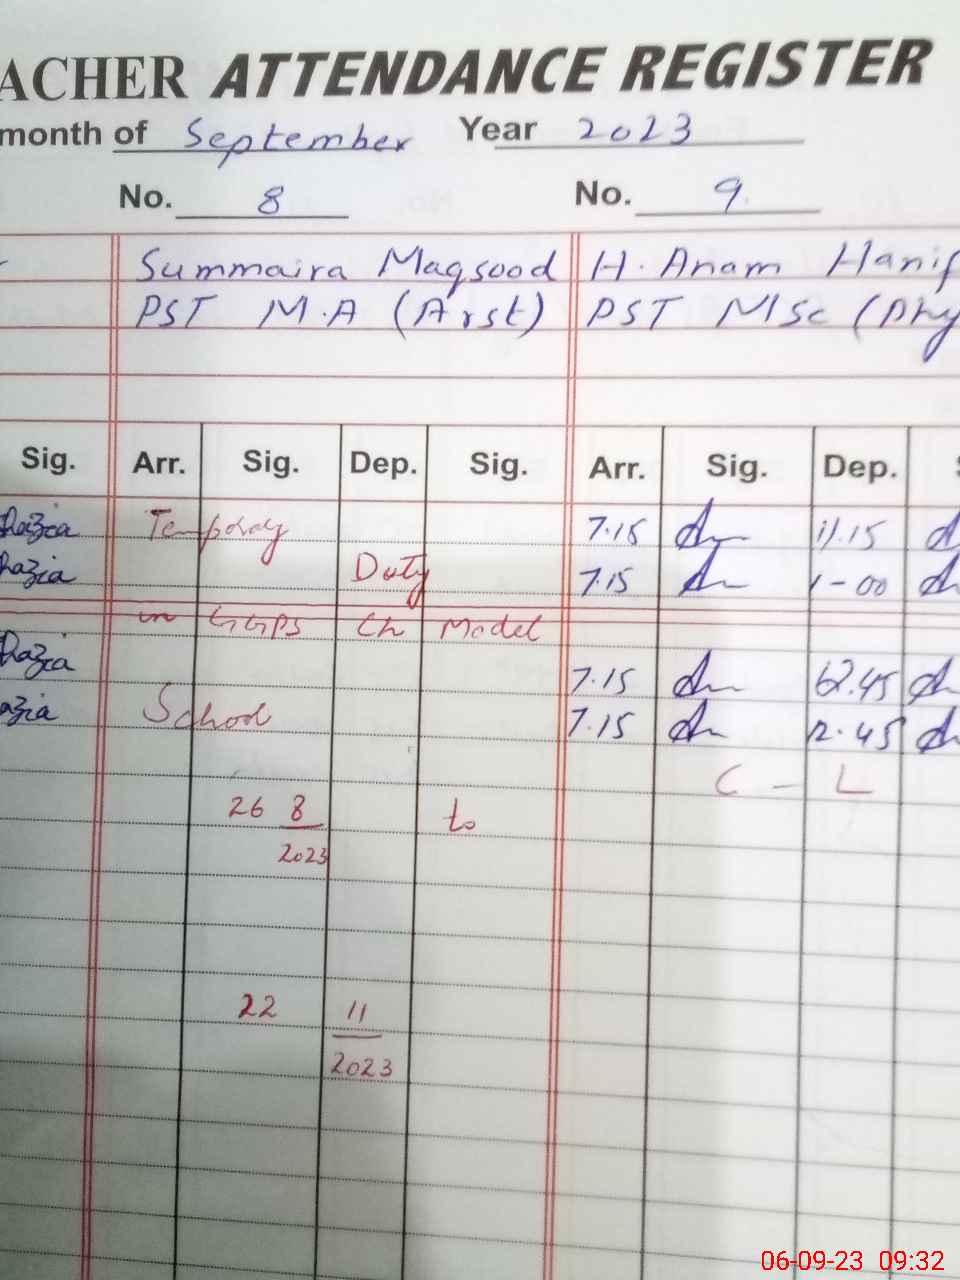 ACHER ATTENDANCE REGISTER
month of September Year 2023
No. 8 No. 9
Summaira Maqsood H. Anam Hanif
PST M.A (Arst) PST MSc (Phy
Sig. Arr. Sig. Dep. Sig. Arr. Sig. Dep.
Razia Temporary 7.15 11.15
Razia Duty 7.15 1-00
in GGPS Ch Model
Razia 7.15 12.45
azia School 7.15 12.45
C - L
26 8 to
2023
22 11
2023
06-09-23 09:32